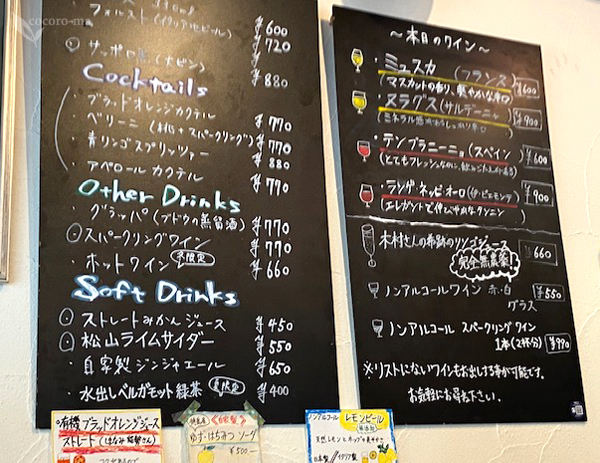 cocoro-ma
フォルスト(イタリアビール) ¥600
¥720
サッポロ (大ビン) ¥880
Cocktails
・ブラッドオレンジカクテル ¥770
・ベリーニ(桃+スパークリング) ¥770
・青リンゴスプリッツァー ¥880
・アペロール カクテル ¥770
Other Drinks
・グラッパ(ブドウの蒸留酒) ¥770
・スパークリングワイン ¥770
・ホットワイン 冬限定 ¥660
Soft Drinks
・ストレートみかんジュース ¥450
・松山ライムサイダー ¥550
・自家製ジンジャエール ¥650
・水出しベルガモット緑茶 夏限定 ¥400
〜本日のワイン〜
・ミュスカ (フランス) ¥600
(マスカットの香り、爽やかな辛口
・ヌラグス(サルデーニャ) ¥900
(ミネラル感 しっかり辛口
・テンプラニーニョ(スペイン) ¥600
(とてもフレッシュなのに、飲みごたえがある)
・ランゲ・ネッビオーロ(伊・ピエモンテ) ¥900
(エレガントで伸びやかなタンニン
木村さんの奇跡のリンゴジュース ¥660
完全無農薬
ノンアルコールワイン 赤・白 ¥550
グラス
ノンアルコール スパークリングワイン
1本(2杯分) ¥990
※リストにないワインもお出しする事が可能です。
お気軽にお尋ね下さい。
有機ブラッドオレンジジュース
ストレート
自家製
ゆず・はちみつ ソーダ
¥500-
ノンアルコール レモンビール
無添加
天然レモンとホップの爽やかさ